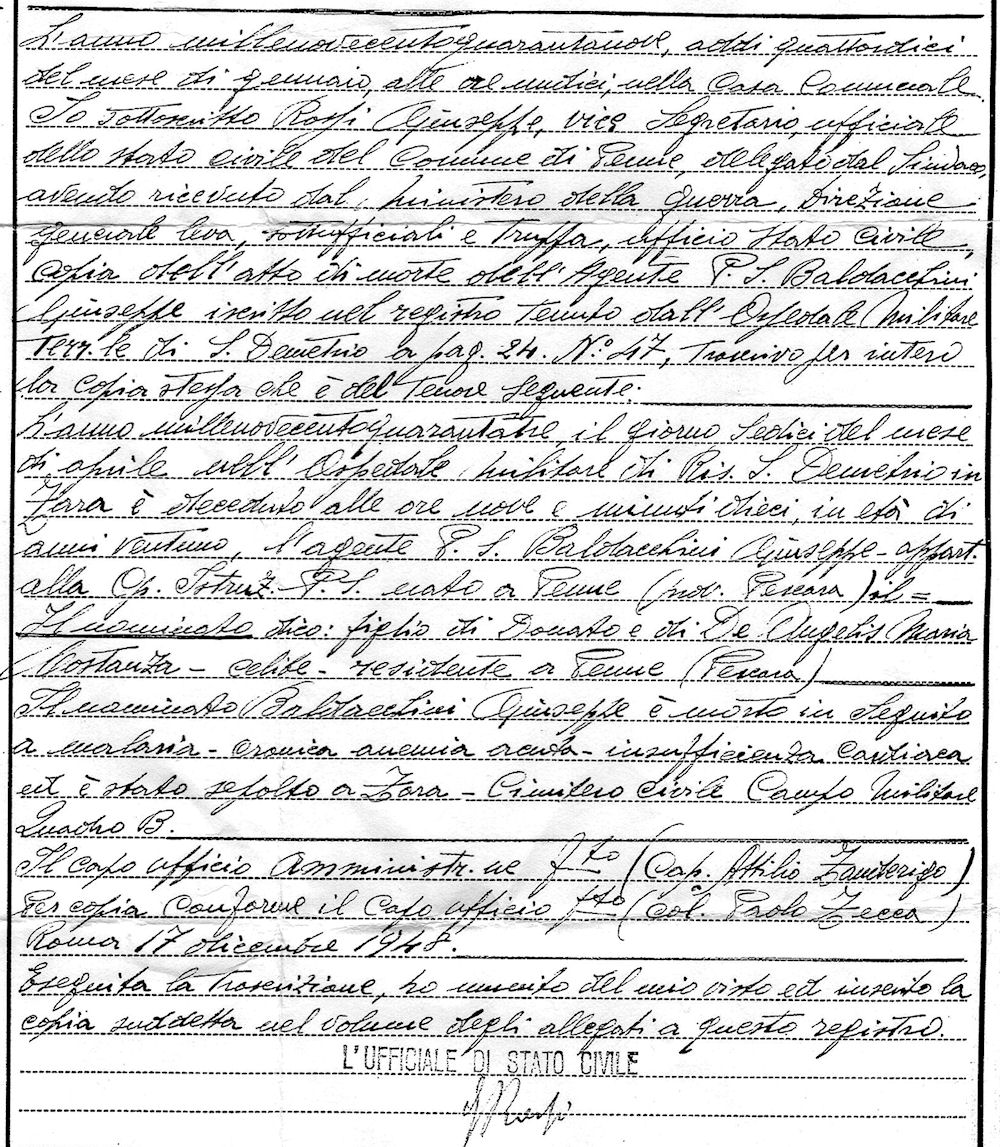 L'anno millenovecentoquarantanove, addì quattordici
del mese di gennaio, alle ore undici, nella Casa Comunale
Io sottoscritto Rossi Giuseppe, vice Segretario, ufficiale
dello stato civile del Comune di Penne, delegato dal Sindaco,
avendo ricevuto dal Ministero della guerra, Direzione
generale leva, sottufficiali e truppa, ufficio stato civile,
copia dell'atto di morte dell'Agente P. S. Baldacchini
Giuseppe iscritto nel registro tenuto dall'Ospedale Militare
Terr.le di S. Demetrio a pag. 24. N° 47, trascrivo per intero
la copia stessa che è del tenore seguente.
L'anno millenovecentoquarantatre, il giorno sedici del mese
di aprile nell'Ospedale militare di Ris. S. Demetrio in
Zara è deceduto alle ore nove e minuti dieci, in età di
anni ventuno, l'agente P. S. Baldacchini Giuseppe - appart.
alla Cp. Istruz. P. S. nato a Penne (prov. Pescara) il =
Il nominato dico: figlio di Donato e di De Angelis Maria
Costanza - celibe - residente a Penne (Pescara)
Il nominato Baldacchini Giuseppe è morto in seguito
a malaria - cronica anemia acuta - insufficienza cardiaca
ed è stato sepolto a Zara - Cimitero Civile Campo Militare
Quadro B.
Il capo ufficio Amministr. ne f.to (Cap. Attilio Zanderigo)
Per copia conforme il Capo ufficio f.to (Col. Paolo Zecca)
Roma 17 dicembre 1948.
Eseguita la trascrizione, ho munito del mio visto ed inserito la
copia suddetta nel volume degli allegati a questo registro.
L'UFFICIALE DI STATO CIVILE
G Rossi